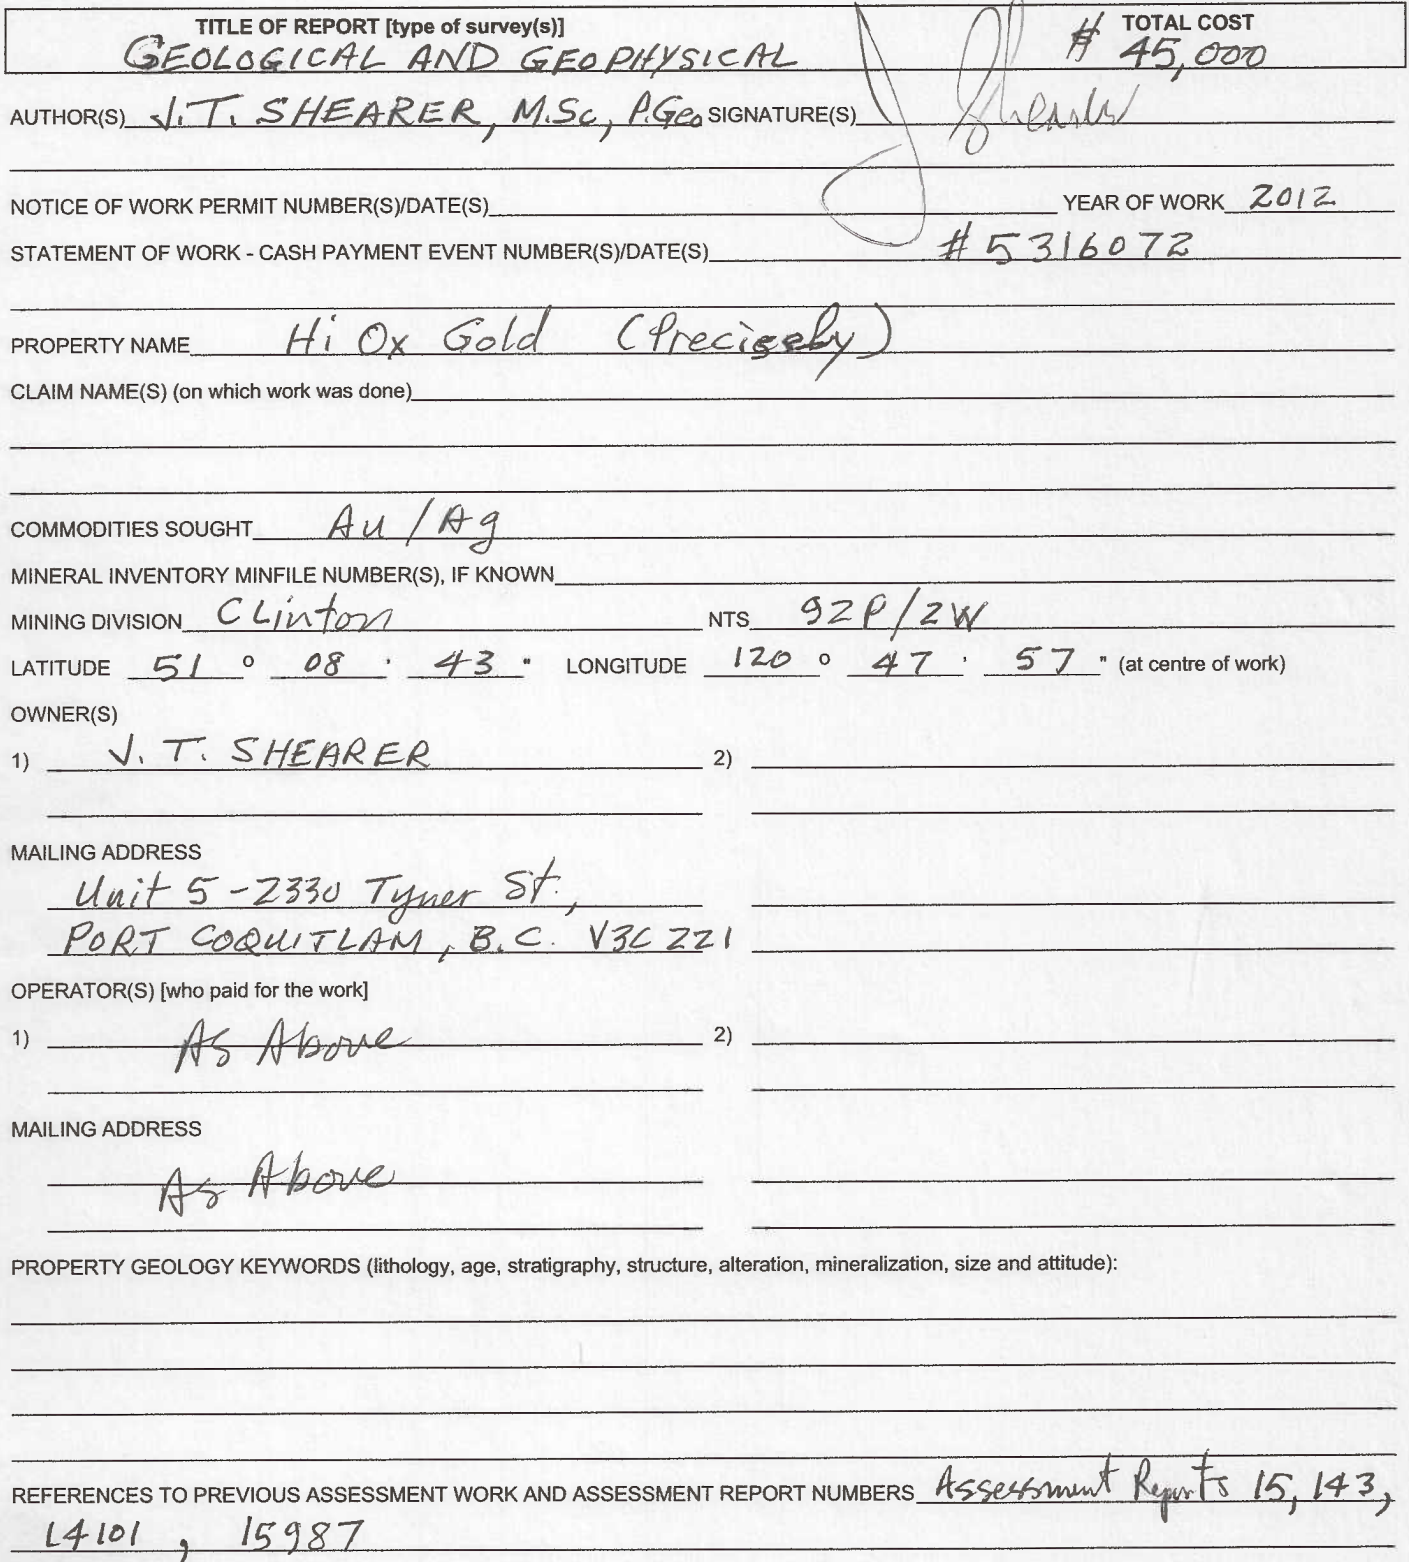 TITLE OF REPORT [type of survey(s)] TOTAL COST
GEOLOGICAL AND GEOPHYSICAL # 45,000
AUTHOR(S) J.T. SHEARER, M.Sc, P.Geo SIGNATURE(S) J Shearer
NOTICE OF WORK PERMIT NUMBER(S)/DATE(S) YEAR OF WORK 2012
STATEMENT OF WORK - CASH PAYMENT EVENT NUMBER(S)/DATE(S) #5316072
PROPERTY NAME Hi Ox Gold (Preciseby)
CLAIM NAME(S) (on which work was done)
COMMODITIES SOUGHT Au / Ag
MINERAL INVENTORY MINFILE NUMBER(S), IF KNOWN
MINING DIVISION CLinton NTS 92P/2W
LATITUDE 51 o 08 ' 43 " LONGITUDE 120 o 47 ' 57 " (at centre of work)
OWNER(S)
1) J. T. SHEARER 2)
MAILING ADDRESS
Unit 5 - 2330 Tyner St.,
PORT COQUITLAM, B.C. V3C 2Z1
OPERATOR(S) [who paid for the work]
1) As Above 2)
MAILING ADDRESS
As Above
PROPERTY GEOLOGY KEYWORDS (lithology, age, stratigraphy, structure, alteration, mineralization, size and attitude):
REFERENCES TO PREVIOUS ASSESSMENT WORK AND ASSESSMENT REPORT NUMBERS Assessment Reports 15,143,
14101, 15987